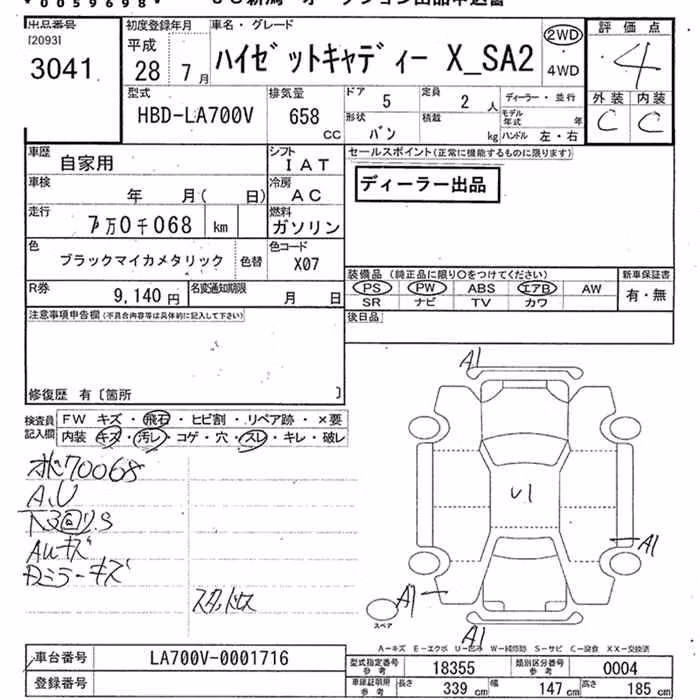 *0059698*
出品番号
[2093]
3041
初度登録年月
平成
28 7月
車名・グレード
ハイゼットキャディー X_SA2
2WD
・
4WD
評価点
4
外装 内装
C C
型式
HBD-LA700V
排気量
658
CC
ドア 5
形状 バン
定員 2 人
積載 kg
ディーラー・並行
モデル年式 年
ハンドル 左・右
車歴 自家用
シフト IAT
車検 年 月( 日)
冷房 AC
走行 7万0千068 km
燃料 ガソリン
色 ブラックマイカメタリック 色替
色コード X07
R券 9,140円
名変通知期限 月 日
セールスポイント(正常に機能するものに限ります)
ディーラー出品
装備品(純正品に限り○をつけてください)
PS PW ABS エアB AW
SR ナビ TV カワ
新車保証書
有・無
後日品
注意事項申告欄(不具合内容等は具体的に記入して下さい)
修復歴 有〔箇所 〕
検査員記入欄
FW キズ・飛石・ヒビ割・リペア跡・×要
内装 キズ・汚レ・コゲ・穴・スレ・キレ・破レ
70068
A.U
キズ
ミラーキズ
A1
U1
A1
A1
A1
スペア
A-キズ E-エクボ U-凹み W-補修跡 S-サビ C-腐食 XX-交換済
車台番号 LA700V-0001716
登録番号
型式指定番号 参考 18355
類別区分番号 参考 0004
車庫証明用 参考 長さ 339 cm 幅 147 cm 高さ 185 cm